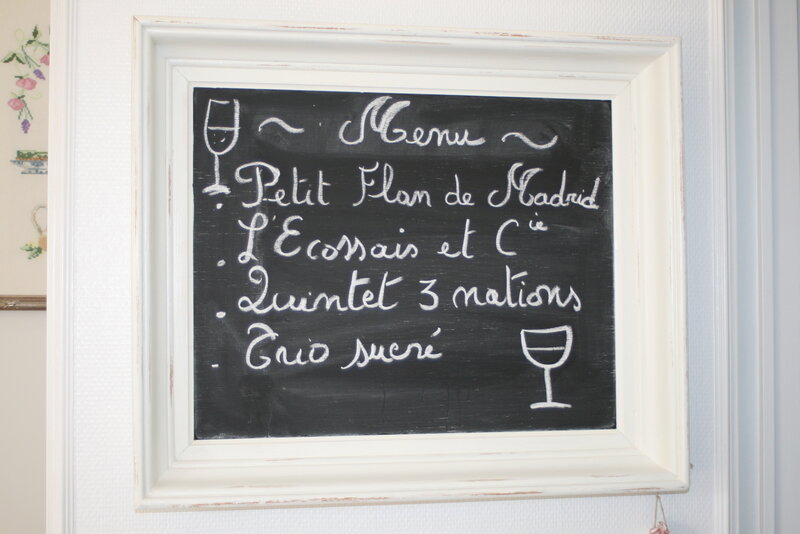 ~ Menu ~
. Petit Flan de Madrid
. L'Ecossais et Cie
. Quintet 3 nations
. Trio sucré